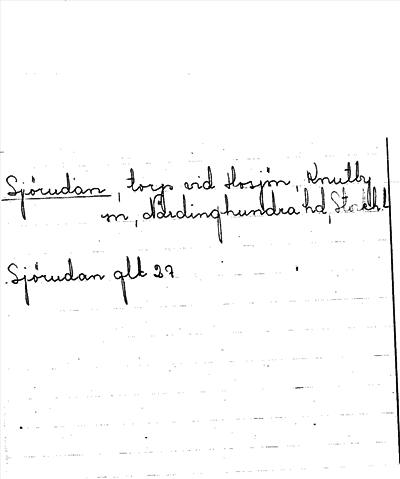 Sjörudan, torp vid Hosjön, Knutby
sn, Närdinghundra hd, Stockh.l
Sjörudan glk 27